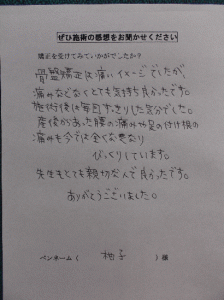 ぜひ施術の感想をお聞かせください
矯正を受けてみていかがでしたか？
骨盤矯正は痛いイメージでしたが、
痛みなくとても気持ち良かったです。
施術後は毎回すっきりした気分でした。
産後からあった腰の痛みや足の付け根の
痛みも今では全くなくなり
びっくりしています。
先生もとても親切なんで良かったです。
ありがとうございました。
ペンネーム（ 柚子 ）様